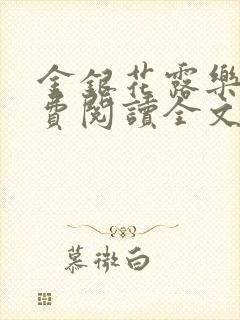 金銀花露樂
費閱讀全文
慕微白